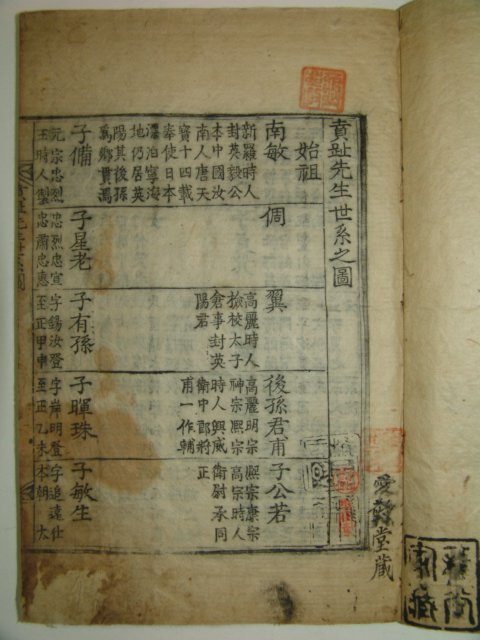 賁趾先生世系之圖
始祖
南敏
新羅時人
封英毅公
本中國汝
南人唐天
寶十四載
奉使日本
漂泊寧海
地仍居英
陽其後孫
鄕貫焉
倜
翼
高麗時人
檢校太子
倉事封英
陽君
後孫君甫
高麗明宗
神宗熙宗
時人興威
衛中郞將
甫一作輔
子公若
熙宗康宗
高宗時人
衛尉承同
正
子備
元宗忠烈
王時人
子星老
忠烈忠宣
忠肅忠惠
子有孫
字錫汝登
至正甲申
子暉珠
字岸明登
至正乙未
子敏生
字追遠仕
本朝太
堂藏